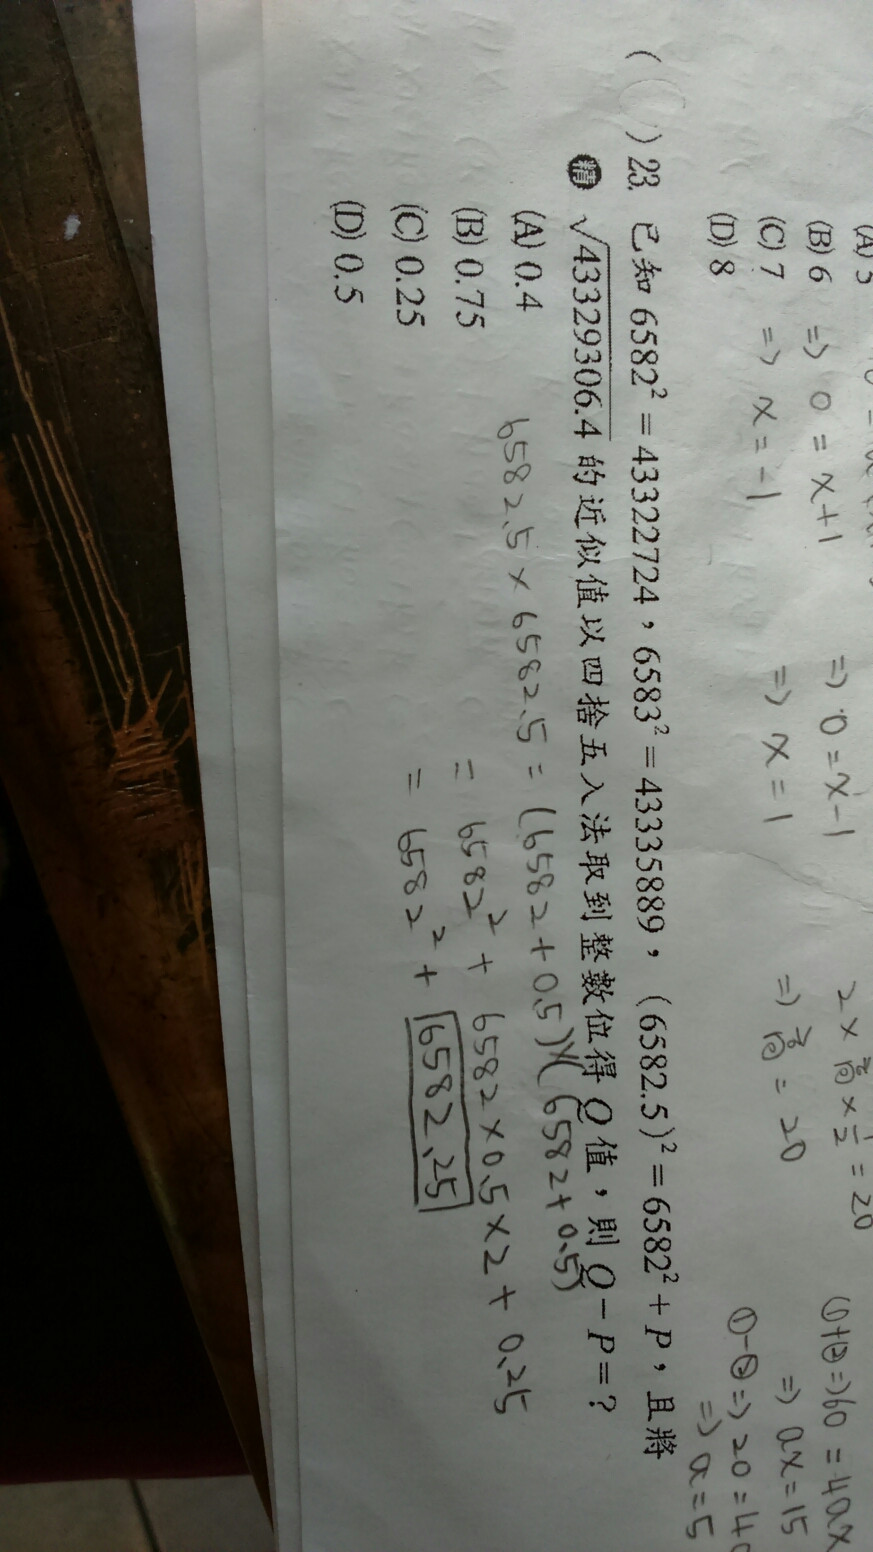 (A) 5
(B) 6 ⇒ 0 = x+1 ⇒ 0 = x-1 2 × 高 × 1/2 = 20 ①+②⇒ 60 = 4ax
(C) 7 ⇒ x = -1 ⇒ x = 1 ⇒ 高 = 20 ⇒ ax = 15
(D) 8 ①-②⇒ 20 = 4a
⇒ a = 5
( C ) 23. 已知 6582² = 43322724，6583² = 43335889，(6582.5)² = 6582² + P，且將
精 √43329306.4 的近似值以四捨五入法取到整數位得 Q 值，則 Q - P = ？
(A) 0.4
(B) 0.75
(C) 0.25
(D) 0.5
6582.5 × 6582.5 = (6582 + 0.5)×(6582 + 0.5)
= 6582² + 6582 × 0.5 × 2 + 0.25
= 6582² + 6582.25